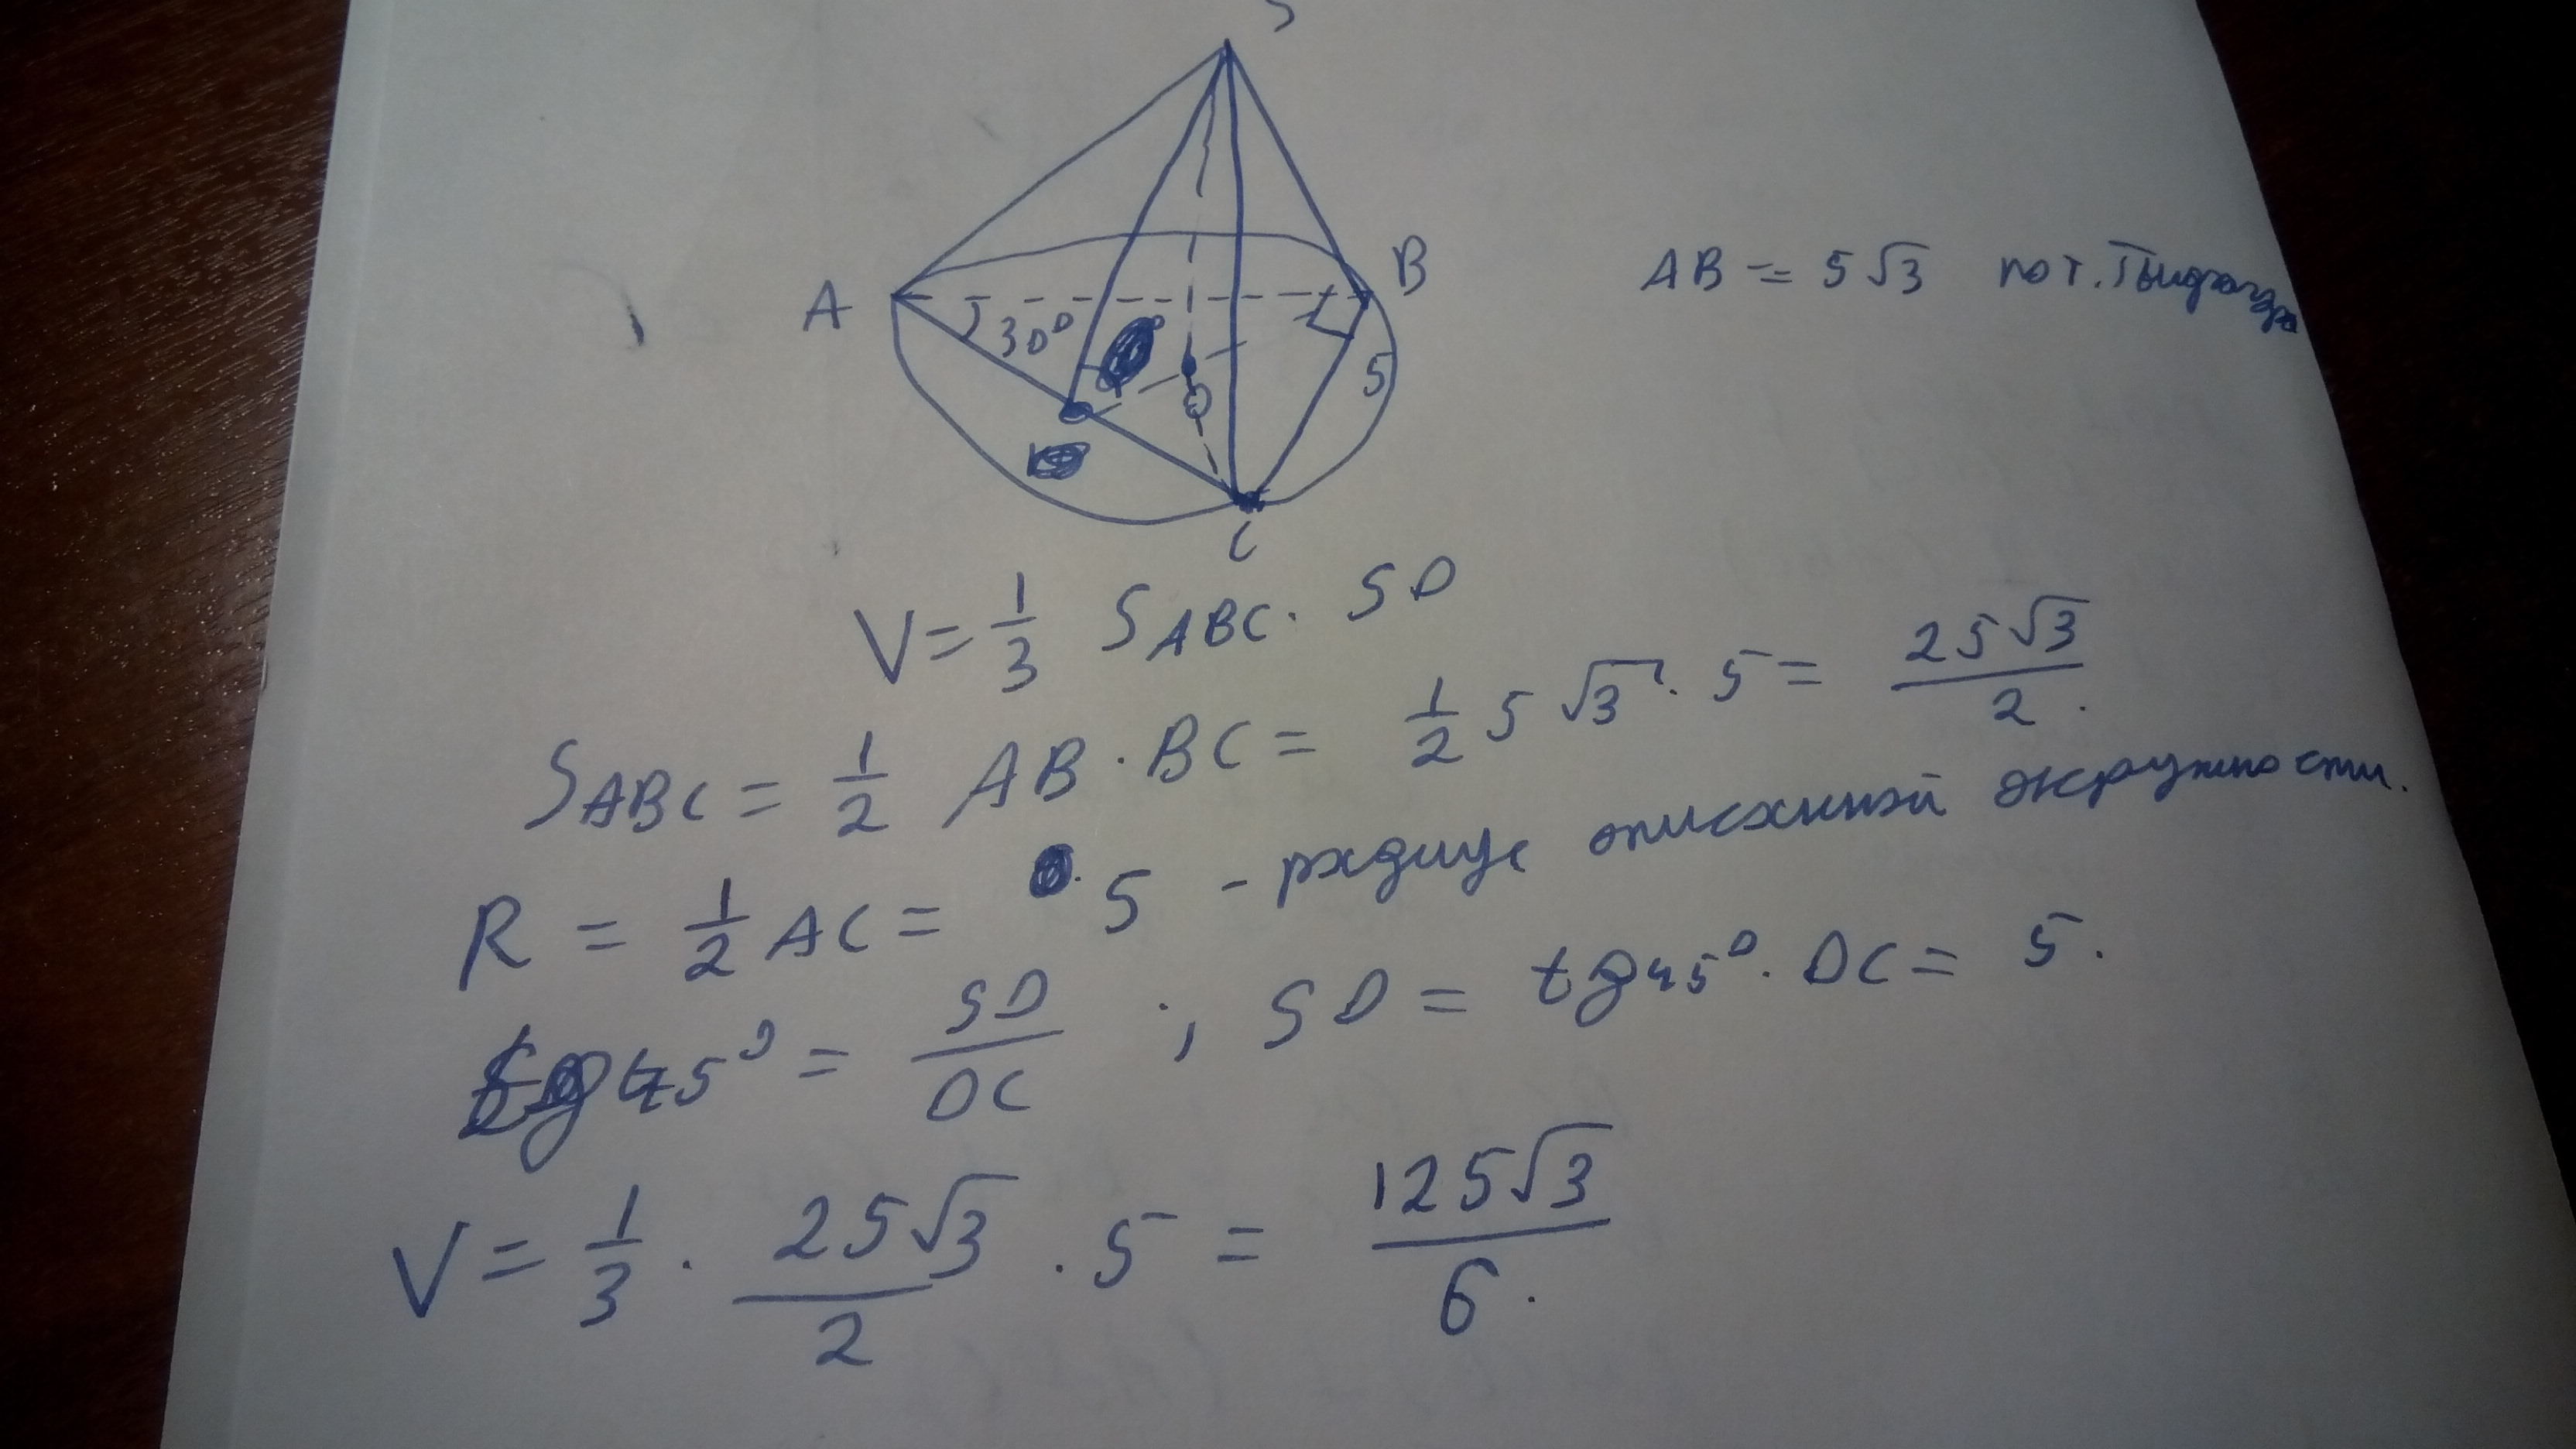 S
A
B
30°
5
O
C
AB = 5√3 по т. Пифагора
V = 1/3 S ABC · SO
S ABC = 1/2 AB · BC = 1/2 5√3 · 5 = 25√3/2.
R = 1/2 AC = 5 - радиус описанной окружности.
tg 45° = SO/OC ; SO = tg 45° · OC = 5.
V = 1/3 · 25√3/2 · 5 = 125√3/6.